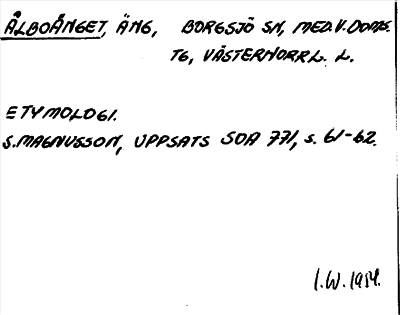 ÅLBOÄNGET, ÄNG, BORGSJÖ SN, MED.V.DOMS.
TG, VÄSTERNORRL. L.
ETYMOLOGI.
S.MAGNUSSON, UPPSATS SOA 771, s. 61-62.
I.W. 1984.